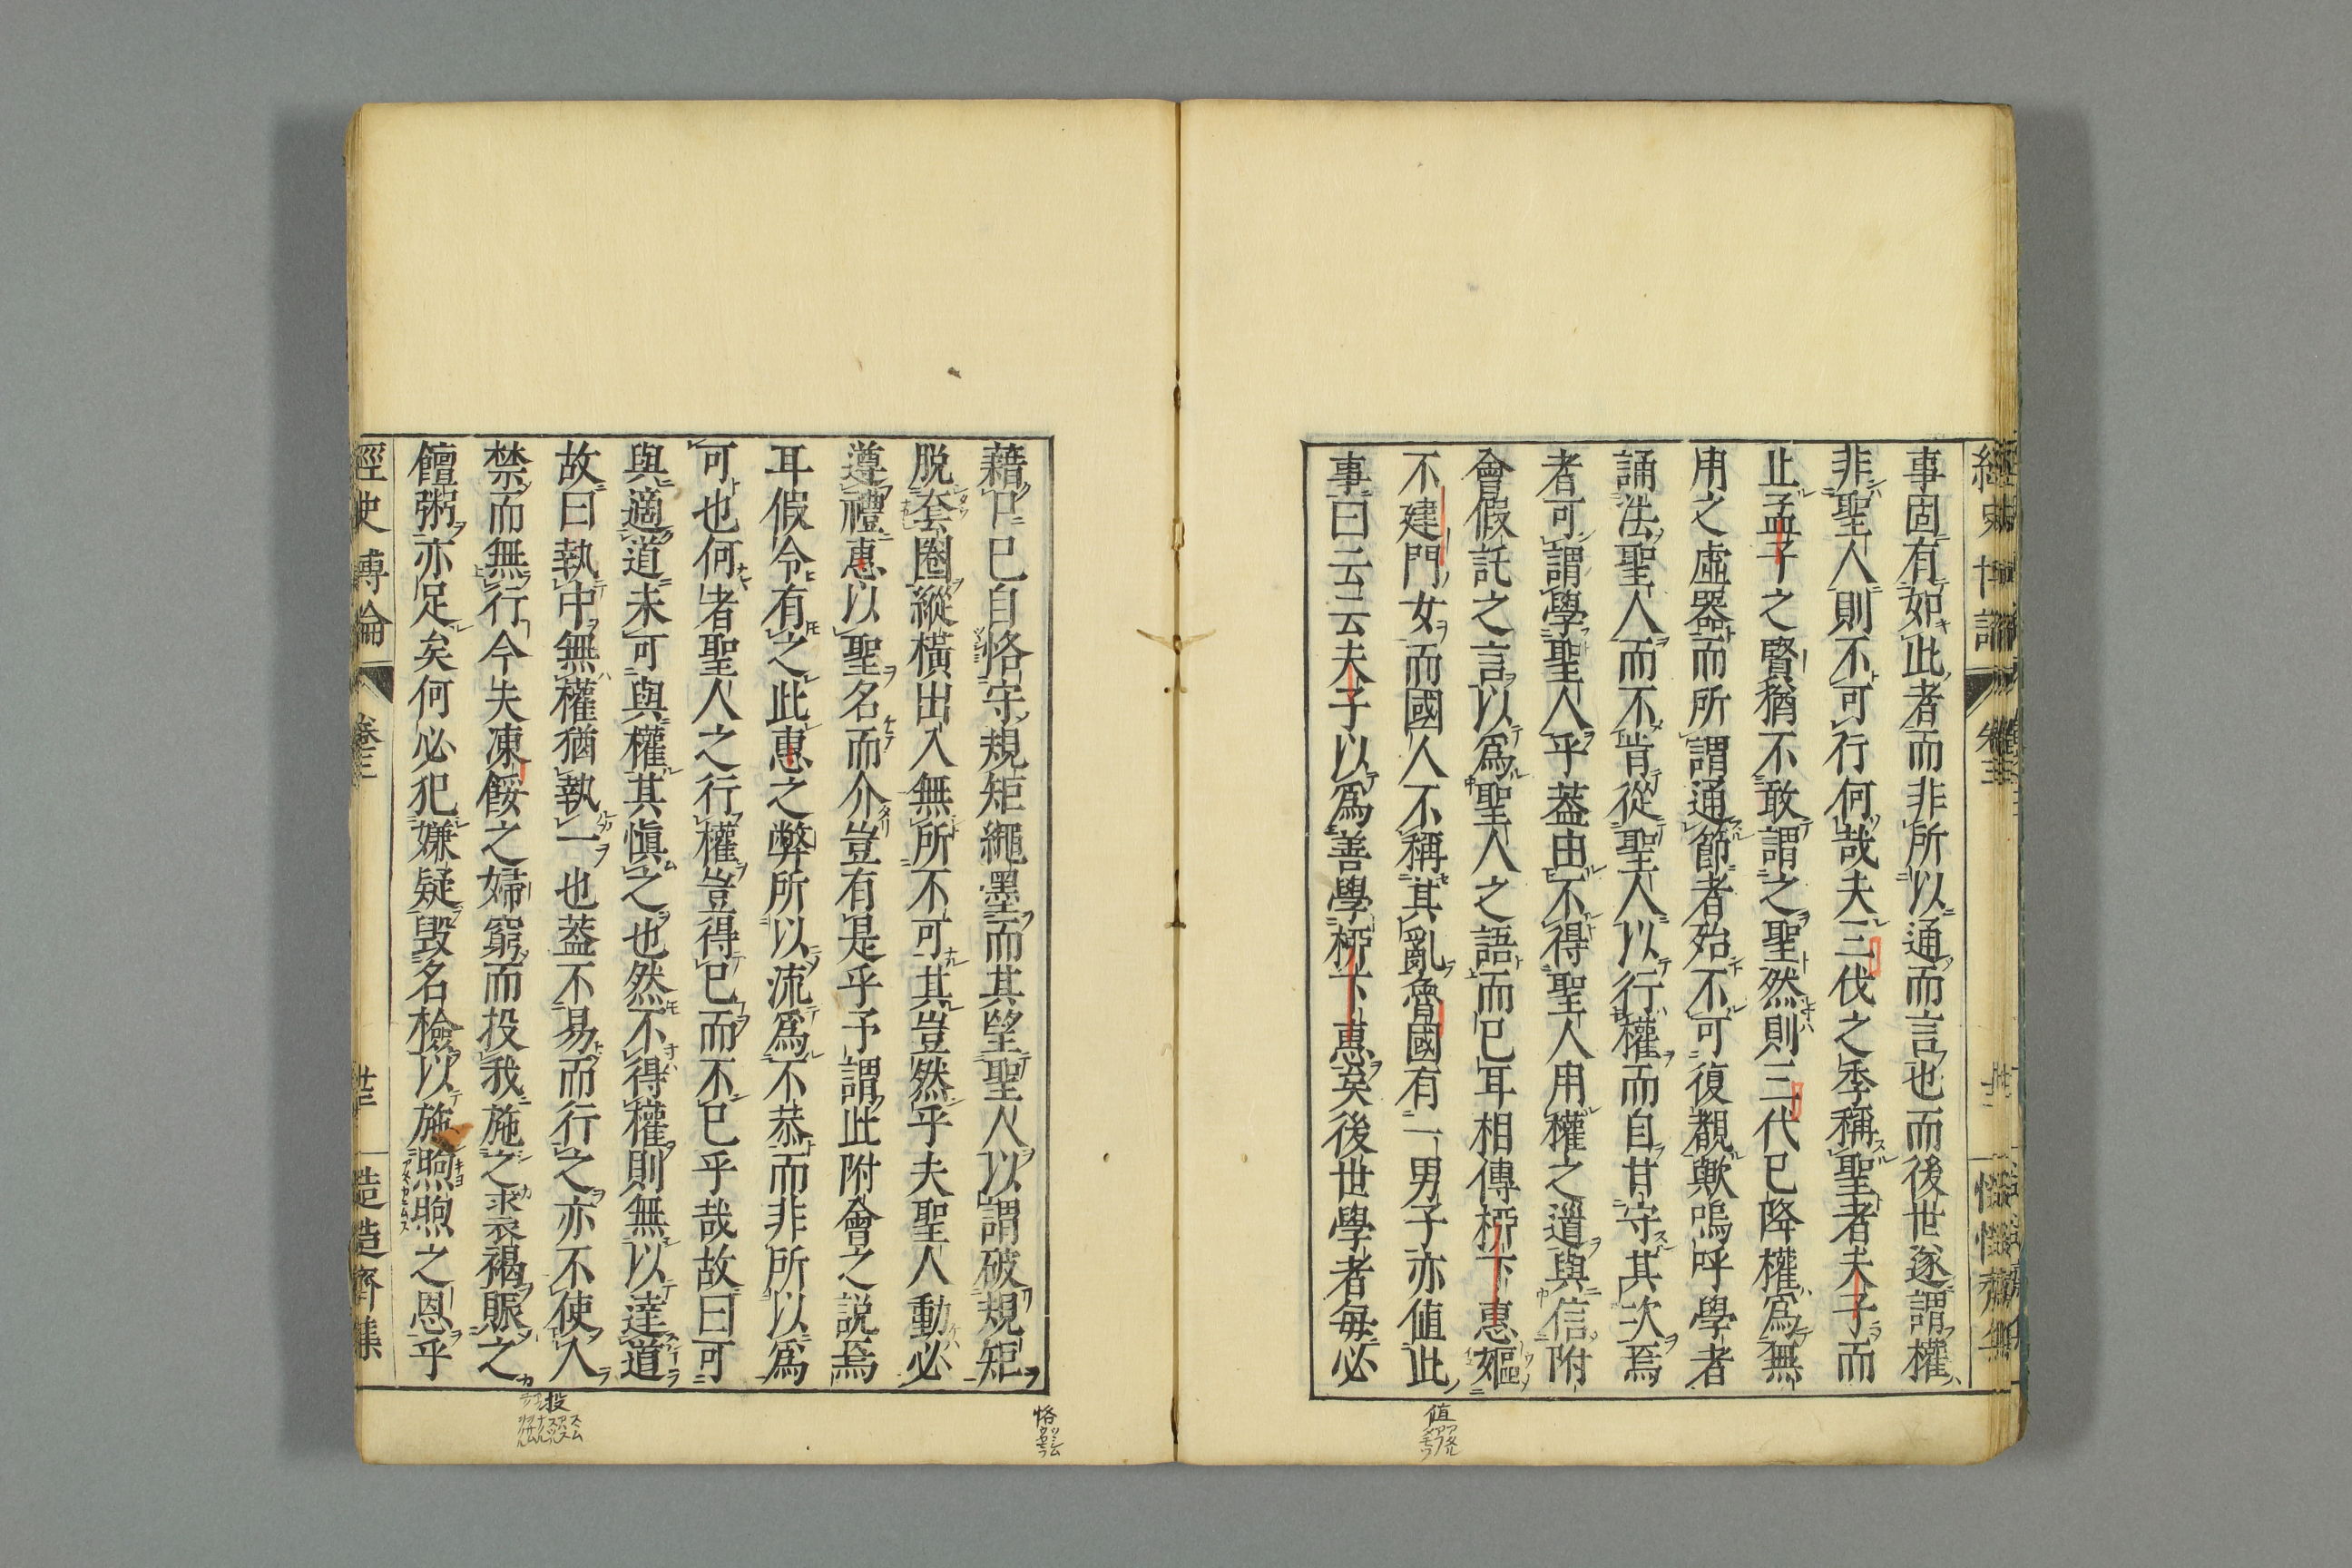 事固有如此者而非所以通而言也而後世遂謂權
非聖人則不可行何哉夫三代之季稱聖者夫子而
止孟子之賢猶不敢謂之聖然則三代已降權爲無
用之虛器而所謂通節者殆不可復覩歟嗚呼學者
誦法聖人而不肯從聖人以行權而自甘守其次焉
者可謂學聖人乎葢由不得聖人用權之道與信附
會假託之言以爲聖人之語而已耳相傳柳下惠嫗
不建門女而國人不稱其亂魯國有一男子亦値此
事曰云云夫子以爲善學柳下惠矣後世學者每必
藉口已自恪守規矩繩墨而其望聖人以謂破規矩
脱套圈縱橫出入無所不可其豈然乎夫聖人動必
遵禮惠以聖名而介豈有是乎予謂此附會之説焉
耳假令有之此惠之弊所以流爲不恭而非所以爲
可也何者聖人之行權豈得已而不已乎哉故曰可
與適道未可與權其愼之也然不得權則無以達道
故曰執中無權猶執一也葢不易而行之亦不使人
禁而無行今夫凍餒之婦窮而投我施之裘褐賑之
饘粥亦足矣何必犯嫌疑毀名檢以施煦煦之恩乎
經史博論
卷三
廿三
値
恪
投